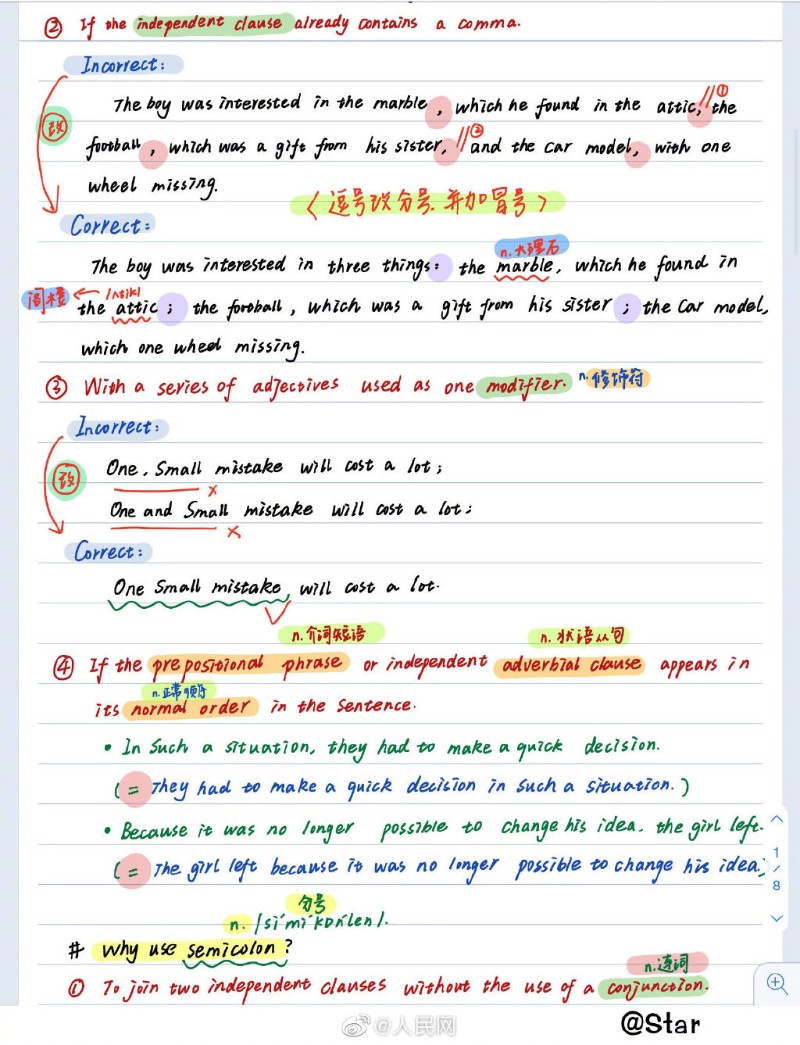 ② If the independent clause already contains a comma.
Incorrect:
The boy was interested in the marble, which he found in the attic, // ① the
改
football, which was a gift from his sister, // ② and the car model, with one
wheel missing.
<逗号改分号.并加冒号>
Correct:
n.大理石
The boy was interested in three things: the marble, which he found in
阁楼 ← /ˈætik/
the attic; the football, which was a gift from his sister; the car model,
which one wheel missing.
③ With a series of adjectives used as one modifier. n.修饰符
Incorrect:
One, small mistake will cost a lot;
×
改
One and small mistake will cost a lot;
×
Correct:
One small mistake, will cost a lot.
n.介词短语 n.状语从句
④ If the prepositional phrase or independent adverbial clause appears in
n.正常顺序
its normal order in the sentence.
• In such a situation, they had to make a quick decision.
(= They had to make a quick decision in such a situation.)
• Because it was no longer possible to change his idea, the girl left.
(= The girl left because it was no longer possible to change his idea.)
分号
# Why use semicolon?
n.连词
① To join two independent clauses without the use of a conjunction.
1
/
8
@人民网
@Star